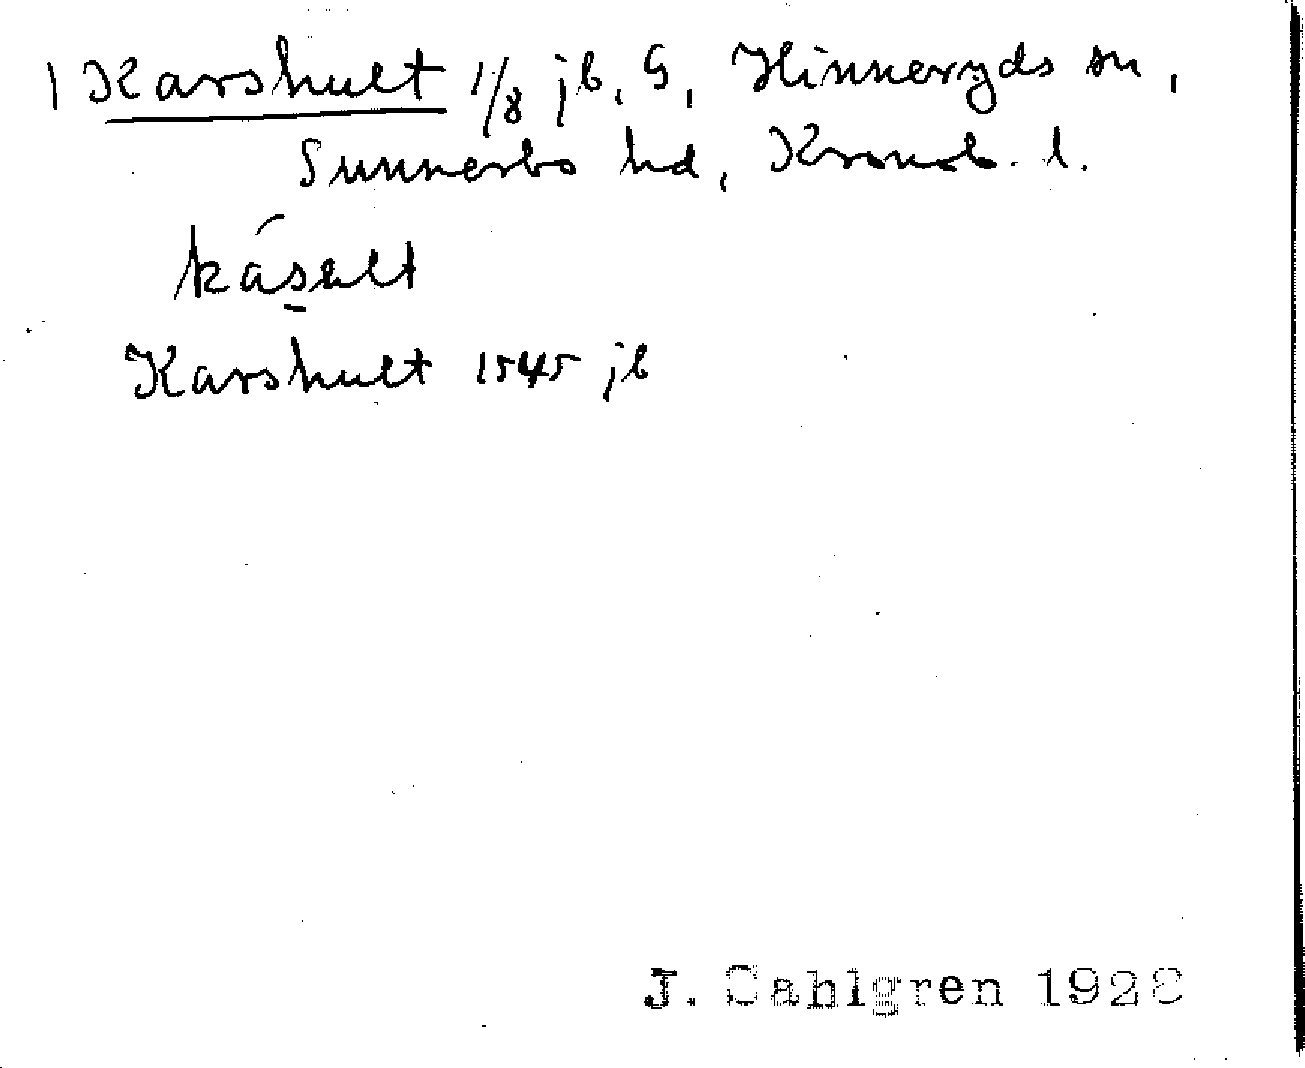 1 Karshult 1/8 jb, G, Hinneryds sn,
Sunnerbo hd, Kronob. l.
kásalt
Karshult 1545 jb
J. Sahlgren 1928